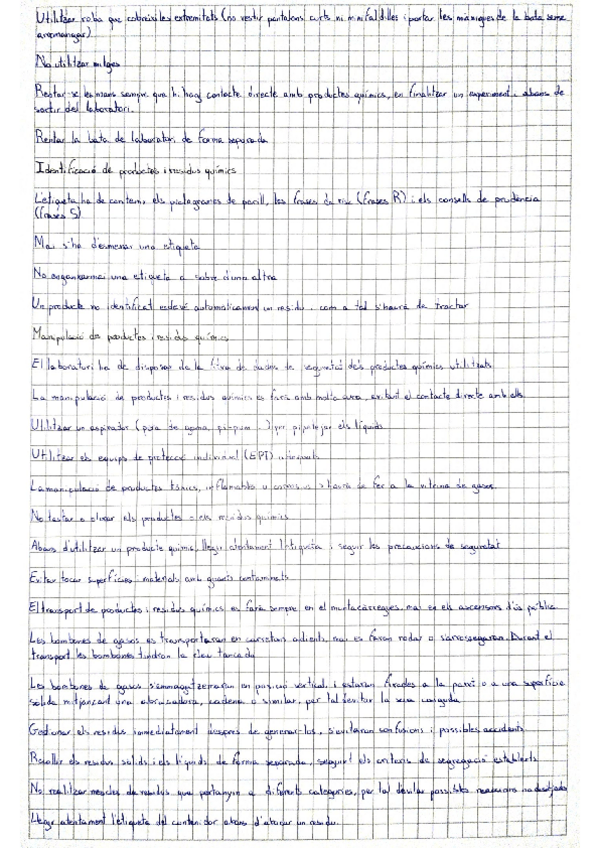 Utilitzar roba que cobreixi les extremitats (no vestir pantalons curts ni minifaldilles i portar les mànigues de la bata sense
arremangar)
No utilitzar mitges
Rentar-se les mans sempre que hi hagi contacte directe amb productes químics, en finalitzar un experiment i abans de
sortir del laboratori.
Rentar la bata de laboratori de forma separada
Identificació de productes i residus químics
L'etiqueta ha de contenir els pictogrames de perill, les frases de risc (frases R) i els consells de prudència
(frases S)
Mai s'ha d'esmenar una etiqueta
No enganxar mai una etiqueta a sobre d'una altra
Un producte no identificat esdevé automàticament un residu i com a tal s'haurà de tractar
Manipulació de productes i residus químics
El laboratori ha de disposar de la fitxa de dades de seguretat dels productes químics utilitzats
La manipulació de productes i residus químics es farà amb molta cura, evitant el contacte directe amb ells
Utilitzar un aspirador (pera de goma, pi-pump...) per pipetejar els líquids
Utilitzar els equips de protecció individual (EPI)
La manipulació de productes tòxics, inflamables o corrosius s'haurà de fer a la vitrina de gasos
No tastar o olorar els productes o els residus químics
Abans d'utilitzar un producte químic, llegir atentament l'etiqueta i seguir les precaucions de seguretat
Evitar tocar superfícies i materials amb guants contaminats
El transport de productes i residus químics es farà sempre en el muntacàrregues, mai en els ascensors d'ús públic
Les bombones de gasos es transportaran en carretons adients, mai es faran rodar o s'arrossegaran. Durant el
transport les bombones tindran la clau tancada
Les bombones de gasos s'emmagatzemaran en posició vertical i estaran fixades a la paret o a una superfície
sòlida mitjançant una abraçadora, cadena o similar, per tal d'evitar la seva caiguda
Gestionar els residus immediatament després de generar-los, s'evitaran confusions i possibles accidents
Recollir els residus sòlids i els líquids de forma separada, seguint els criteris de segregació establerts
No realitzar mescles de residus que pertanyin a diferents categories, per tal d'evitar possibles reaccions no desitjades
Llegir atentament l'etiqueta del contenidor abans d'abocar un residu.